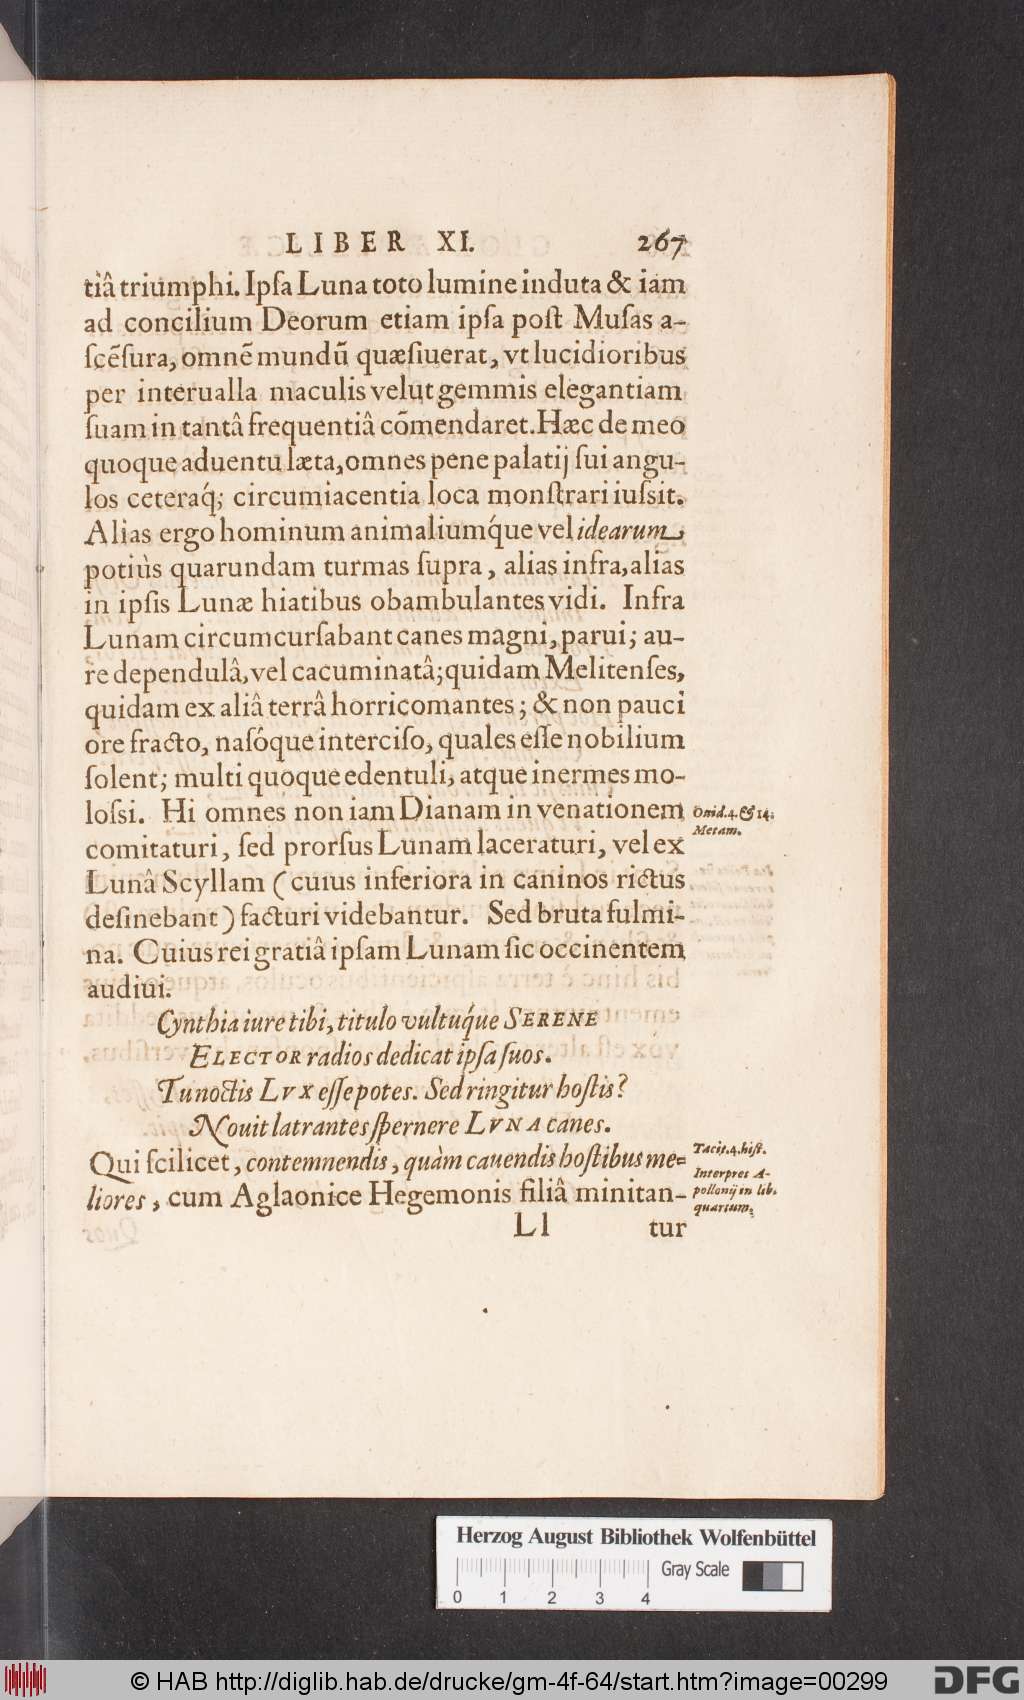 LIBER XI. 267
tiâ triumphi. Ipſa Luna toto lumine induta & iam
ad concilium Deorum etiam ipſa poſt Muſas a-
ſcẽſura, omnẽ mundũ quæſiuerat, vt lucidioribus
per interualla maculis velut gemmis elegantiam
ſuam in tantâ frequentiâ cõmendaret. Hæc de meo
quoque aduentu læta, omnes pene palatij ſui angu-
los ceteraq́; circumiacentia loca monſtrari iuſsit.
Alias ergo hominum animaliumq́ue vel idearum
potiùs quarundam turmas ſupra, alias infra, alias
in ipſis Lunæ hiatibus obambulantes vidi. Infra
Lunam circumcurſabant canes magni, parui; au-
re dependulâ, vel cacuminatâ; quidam Melitenſes,
quidam ex aliâ terrâ horricomantes; & non pauci
ore fracto, naſóque interciſo, quales eſſe nobilium
ſolent; multi quoque edentuli, atque inermes mo-
loſsi. Hi omnes non iam Dianam in venationem
Ouid. 4. & 14.
Metam.
comitaturi, ſed prorſus Lunam laceraturi, vel ex
Lunâ Scyllam (cuius inferiora in caninos rictus
deſinebant) facturi videbantur. Sed bruta fulmi-
na. Cuius rei gratiâ ipſam Lunam ſic occinentem
audiui.
Cynthia iure tibi, titulo vultuq́ue SERENE
ELECTOR radios dedicat ipſa ſuos.
Tu noctis LVX eſſe potes. Sed ringitur hoſtis?
Nouit latrantes ſpernere LVNA canes.
Qui ſcilicet, contemnendis, quàm cauendis hoſtibus me-
liores, cum Aglaonice Hegemonis filiâ minitan-
Tacit. 4. hiſt.
Interpres A-
pollonij in lib.
quartum.
Ll tur
Herzog August Bibliothek Wolfenbüttel
Gray Scale
0 1 2 3 4
© HAB http://diglib.hab.de/drucke/gm-4f-64/start.htm?image=00299
DFG